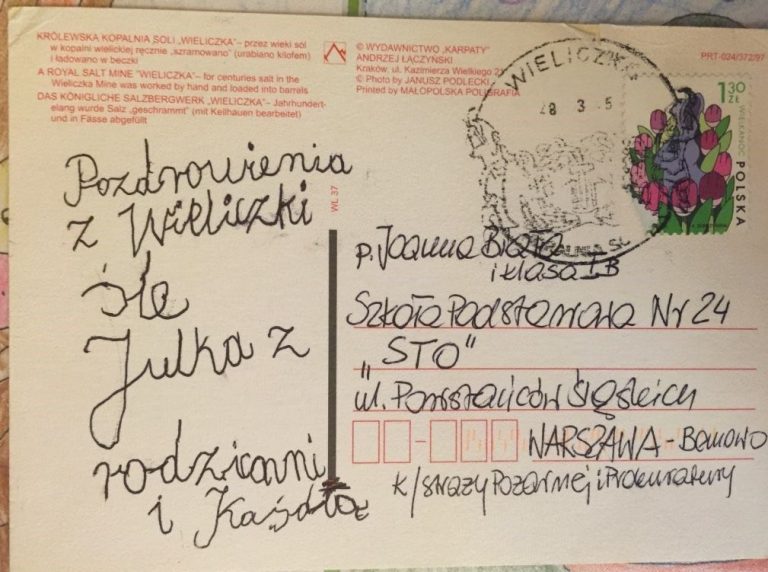 KRÓLEWSKA KOPALNIA SOLI „WIELICZKA" – przez wieki sól
w kopalni wielickiej ręcznie „szramowano" (urabiano kilofem)
i ładowano w beczki
A ROYAL SALT MINE "WIELICZKA" – for centuries salt in the
Wieliczka Mine was worked by hand and loaded into barrels
DAS KÖNIGLICHE SALZBERGWERK „WIELICZKA" – Jahrhundert-
elang wurde Salz „geschrammt" (mit Keilhauen bearbeitet)
und in Fässe abgefüllt
© WYDAWNICTWO „KARPATY"
ANDRZEJ ŁĄCZYŃSKI
Kraków, ul. Kazimierza Wielkiego
© Photo by JANUSZ PODLECKI
Printed by MAŁOPOLSKA POLIGRAFIA
PRT-024/372/97
WIELICZKA
28 3 5
1,30
ZŁ
WIELKANOC
POLSKA
WL 37
Pozdrowienia
z Wieliczki
śle
Julka z
rodzicami
i Kasią
p. Joanna Biała
i klasa I B
Szkoła Podstawowa Nr 24
„STO"
ul. Powstańców Śląskich
WARSZAWA - Bemowo
k/straży Pożarnej i Prokuratury